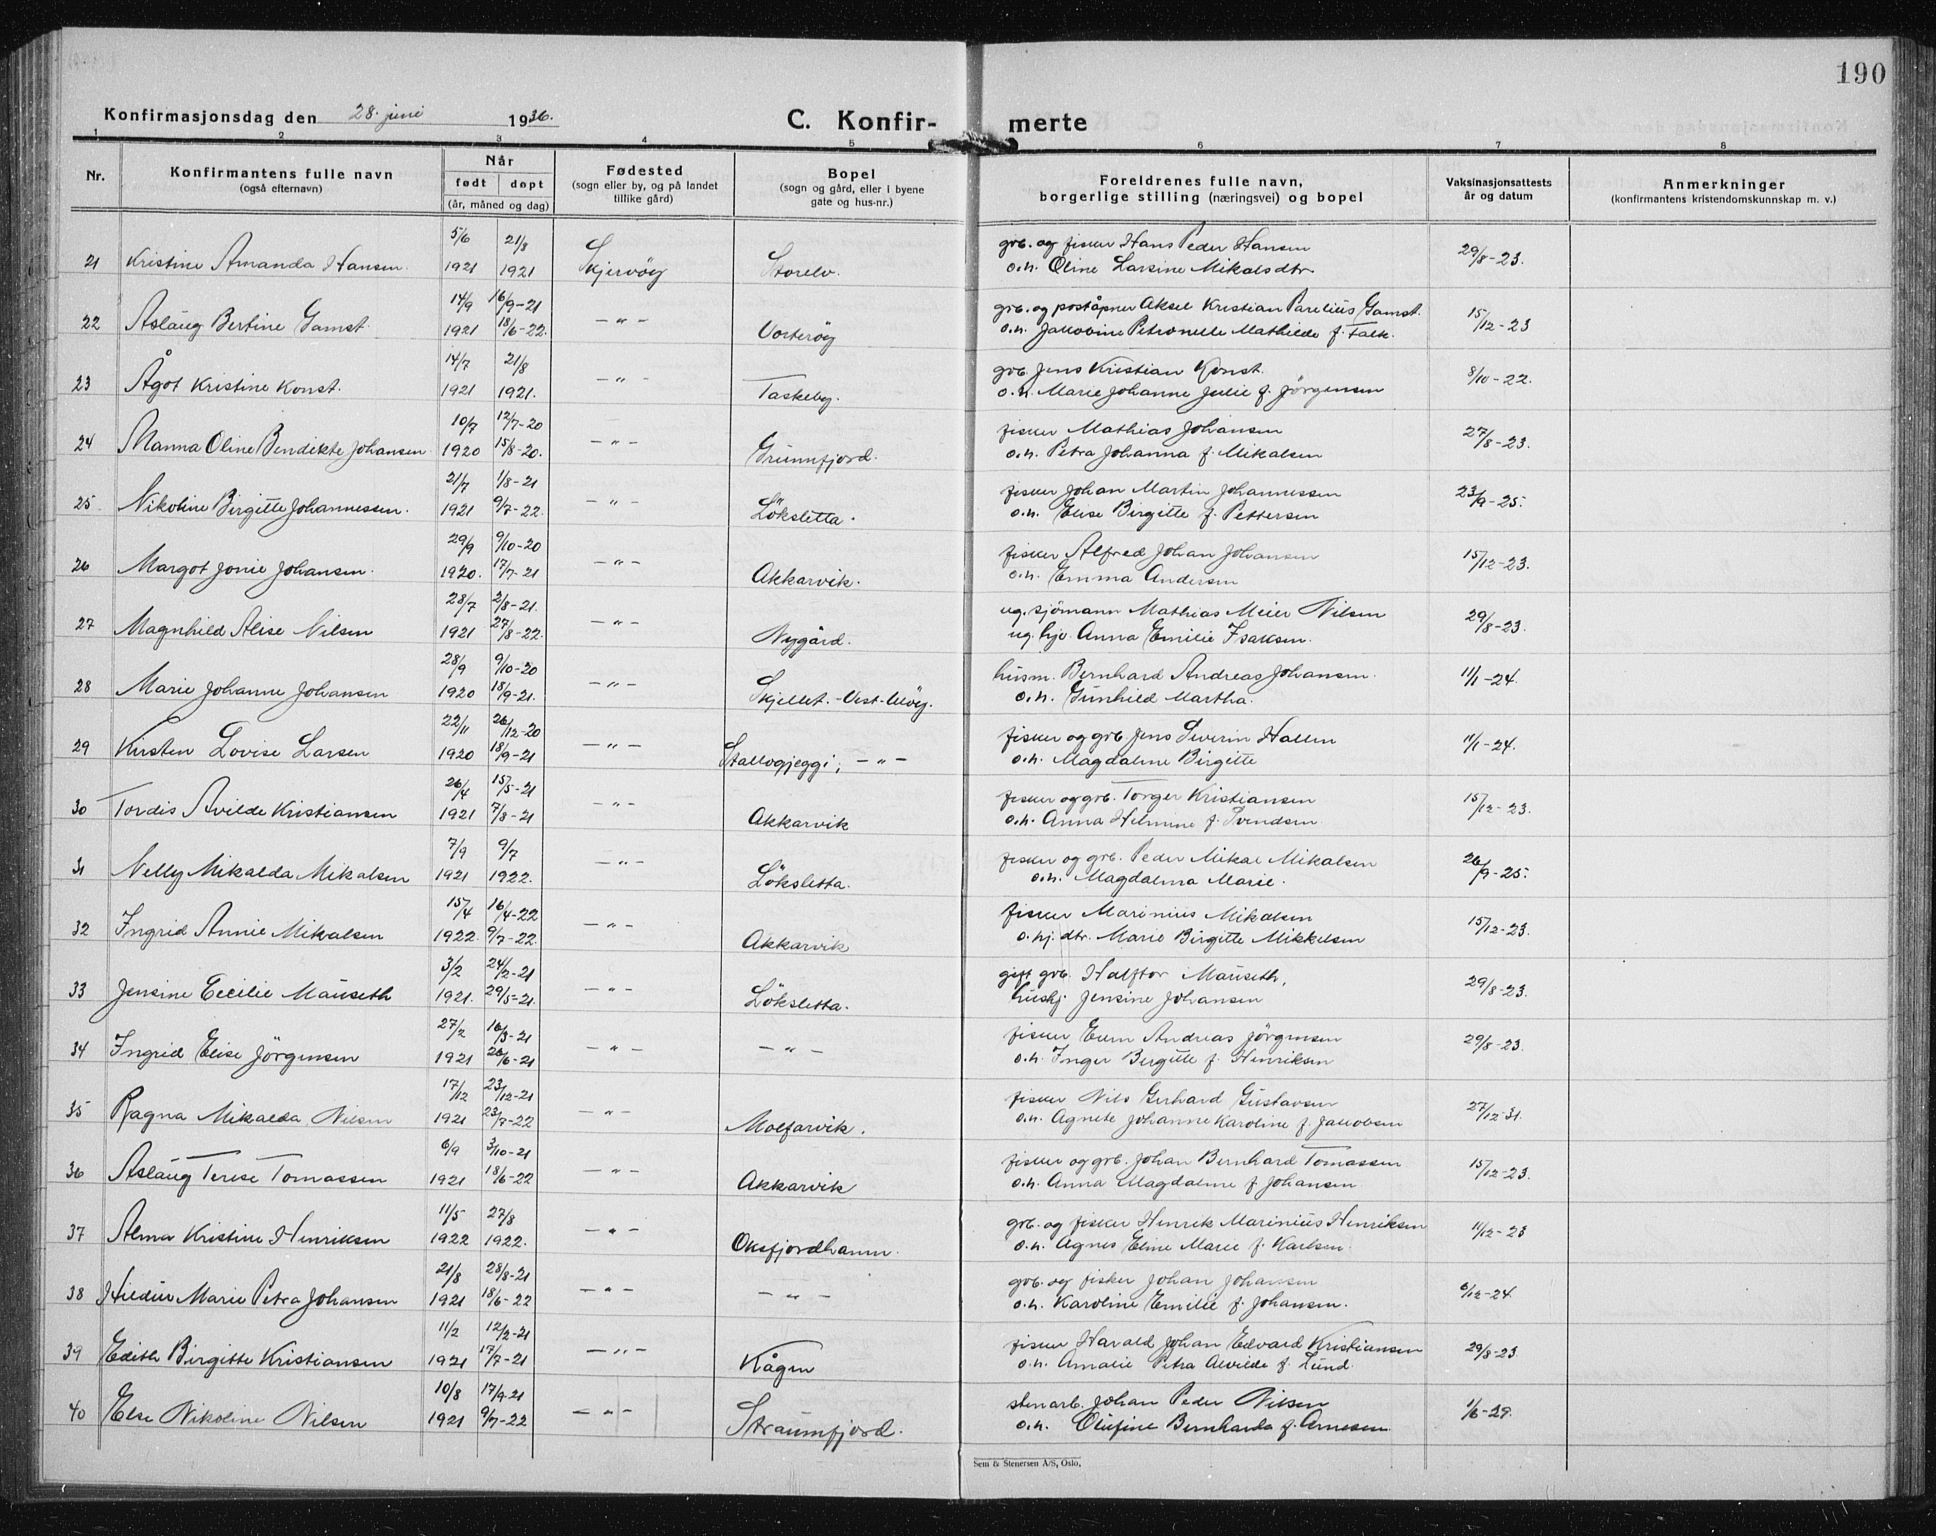 190
Konfirmasjonsdag den 28. juni 1936.
C. Konfir- merte
1 2 3 4 5 6 7 8
Nr.
Konfirmantens fulle navn
(også efternavn)
Når
født døpt
(år, måned og dag)
Fødested
(sogn eller by, og på landet
tillike gård)
Bopel
(sogn og gård, eller i byene
gate og hus-nr.)
Foreldrenes fulle navn,
borgerlige stilling (næringsvei) og bopel
Vaksinasjonsattests
år og datum
Anmerkninger
(konfirmantens kristendomskunnskap m. v.)
5/6 21/8 grb. og fisker Hans Peder Hansen
21 Kristine Amanda Hansen. 1921 1921 Skjervöy Storelv. o.h. Oline Larsine Mikalsdtr. 29/8-23.
14/9 16/9-21 grb. og poståpner Aksel Kristian Parelius Gamst.
22 Aslaug Bertine Gamst. 1921 18/6-22. -"- Vorteröy o.h. Jakobine Petronelle Mathilde f. Falk. 15/12-23
14/7 21/8 grb. Jens Kristian Konst.
23 Ågot Kristine Konst. 1921 1921. -"- Taskeby. o.h. Marie Johanne Julie f. Jörgensen 8/10-22.
10/7 12/7-20 fisker Mathias Johansen
24 Manna Oline Bendikte Johansen 1920 15/8-20. -"- Grunnfjord. o.h. Petra Johanna f. Mikalsen 27/8-23.
21/7 1/8-21 fisker Johan Martin Johannessen
25. Nikoline Birgitte Johannessen. 1921 9/7-22. -"- Löksletta. o.h. Elise Birgitte f. Pettersen 23/9-25.
29/9 9/10-20 fisker Alfred Johan Johansen
26 Margot Jonie Johansen. 1920. 17/7-21 -"- Akkarvik. o.h. Emma Andersen 15/12-23.
28/7 2/8-21. ug. sjömann Mathias Meier Nilsen
27 Magnhild Alise Nilsen 1921 27/8-22. -"- Nygård. ug. hjv. Anna Emilie Isaksen. 29/8-23.
28/9 9/10-20 husm. Bernhard Andreas Johansen.
28 Marie Johanne Johansen 1920 18/9-21. -"- Skjellet.-Vest-Uløy. o.h. Gunhild Martha. 11/1-24.
22/11 26/12-20 fisker og grb. Jens Severin Hallen
29 Kirsten Lovise Larsen 1920 18/9-21 -"- Stallogjeggi, -"- o.h. Magdalene Birgitte 11/1-24.
26/4 15/5-21 fisker og grb. Torger Kristiansen
30 Tordis Avilde Kristiansen 1921 7/8-21 -"- Akkarvik o.h. Anna Helmine f. Svendsen. 15/12-23.
7/9 9/7 fisker og grb. Peder Mikal Mikalsen
31 Nelly Mikalda Mikalsen 1921 1922. -"- Löksletta. o.h. Magdalena Marie. 26/9-25.
15/4 16/4-22 fisker Marinius Mikalsen
32 Ingrid Annie Mikalsen 1922. 9/7-22. -"- Akkarvik o.hj. dtr. Marie Birgitte Mikkelsen 15/12-23.
3/2 24/2-21 gift grb. Halftor Mauseth,
33 Jensine Cecilie Mauseth 1921. 29/5-21. -"- Löksletta. hushj. Jensine Johansen 29/8-23.
27/2 16/3-21 fisker Andreas Jörgensen
34 Ingrid Elise Jörgensen 1921 26/6-21 -"- -"- o.h. Inger Bergitte f. Henriksen 29/8-23.
17/12 23/12-21 fisker Nils Gerhard Gustavsen
35 Ragna Mikalda Nilsen 1921 23/7-22 -"- Molfarvik. o.h. Agnete Johanne Karoline f. Jakobsen 27/12-31.
6/9 3/10-21 fisker og grb. Johan Bernhard Tomassen
36 Aslaug Terese Tomassen 1921 18/6-22 -"- Akkarvik o.h. Anna Magdalene f. Johansen 15/12-23.
11/5 27/8 grb. og fisker Henrik Marinius Henriksen
37 Alma Kristine Henriksen 1922 1922. -"- Oksfjordhamn. o.h. Agnes Eline Marie f. Karlsen. 11/12-23
21/8 28/8-21 grb. og fisker Johan Johansen
38 Hildur Marie Petra Johansen 1921 18/6-22 -"- -"- o.h. Karoline Emilie f. Johansen. 6/12-24.
11/2 12/2-21 fisker Harald Johan Edvard Kristiansen
39 Edith Birgitte Kristiansen 1921 17/7-21 -"- Kågen o.h. Amalie Petra Alvilde f. Lund 29/8-23
10/8 17/9-21 stenarb. Johan Peder Nilsen
40 Else Nikoline Nilsen 1921 9/7-22 -"- Straumfjord. o.h. Olufine Bernharda f. Arnesen. 1/6-29.
Sem & Stenersen A/S, Oslo.